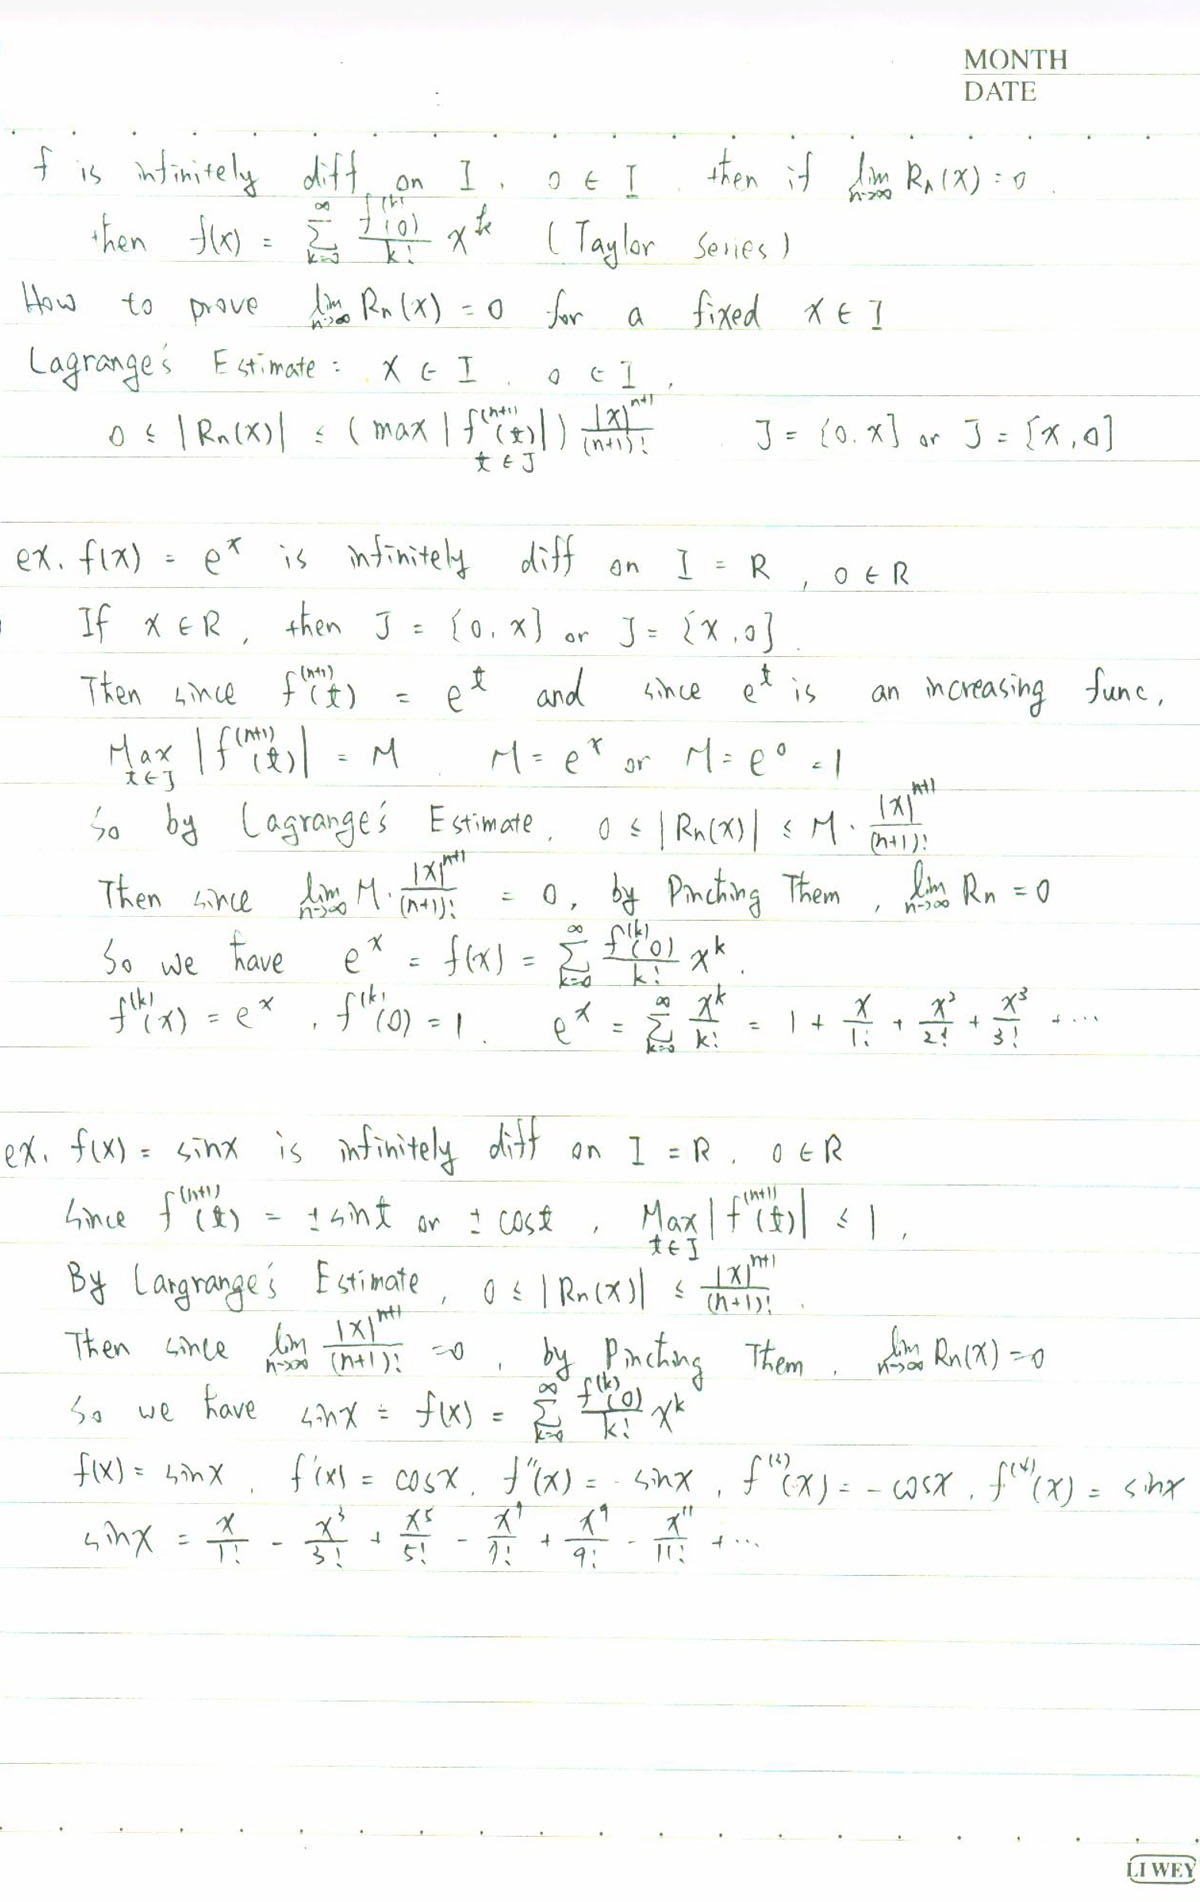 MONTH
DATE
f is infinitely diff on I, 0 ∈ I, then if lim_{n→∞} Rn(x) = 0.
then f(x) = ∑_{k=0}^{∞} f^{(k)}(0)/k! x^k (Taylor Series)
How to prove lim_{n→∞} Rn(x) = 0 for a fixed x ∈ I
Lagrange's Estimate: x ∈ I, 0 ∈ I,
0 ≤ |Rn(x)| ≤ (max_{t∈J} |f^{(n+1)}(t)|) |x|^{n+1}/(n+1)! J = [0, x] or J = [x, 0]
ex. f(x) = e^x is infinitely diff on I = R, 0 ∈ R
If x ∈ R, then J = [0, x] or J = [x, 0].
Then since f^{(n+1)}(t) = e^t and since e^t is an increasing func,
Max_{t∈J} |f^{(n+1)}(t)| = M. M = e^x or M = e^0 = 1
So by Lagrange's Estimate, 0 ≤ |Rn(x)| ≤ M · |x|^{n+1}/(n+1)!
Then since lim_{n→∞} M · |x|^{n+1}/(n+1)! = 0, by Pinching Them, lim_{n→∞} Rn = 0
So we have e^x = f(x) = ∑_{k=0}^{∞} f^{(k)}(0)/k! x^k.
f^{(k)}(x) = e^x, f^{(k)}(0) = 1. e^x = ∑_{k=0}^{∞} x^k/k! = 1 + x/1! + x^2/2! + x^3/3! + ...
ex. f(x) = sinx is infinitely diff on I = R, 0 ∈ R
Since f^{(n+1)}(t) = ±sint or ±cost, Max_{t∈J} |f^{(n+1)}(t)| ≤ 1,
By Largrange's Estimate, 0 ≤ |Rn(x)| ≤ |x|^{n+1}/(n+1)!.
Then since lim_{n→∞} |x|^{n+1}/(n+1)! = 0, by Pinching Them, lim_{n→∞} Rn(x) = 0
So we have sinx = f(x) = ∑_{k=0}^{∞} f^{(k)}(0)/k! x^k
f(x) = sinx, f'(x) = cosx, f''(x) = -sinx, f^{(3)}(x) = -cosx, f^{(4)}(x) = sinx
sinx = x/1! - x^3/3! + x^5/5! - x^7/7! + x^9/9! - x^11/11! + ...
LI WEY